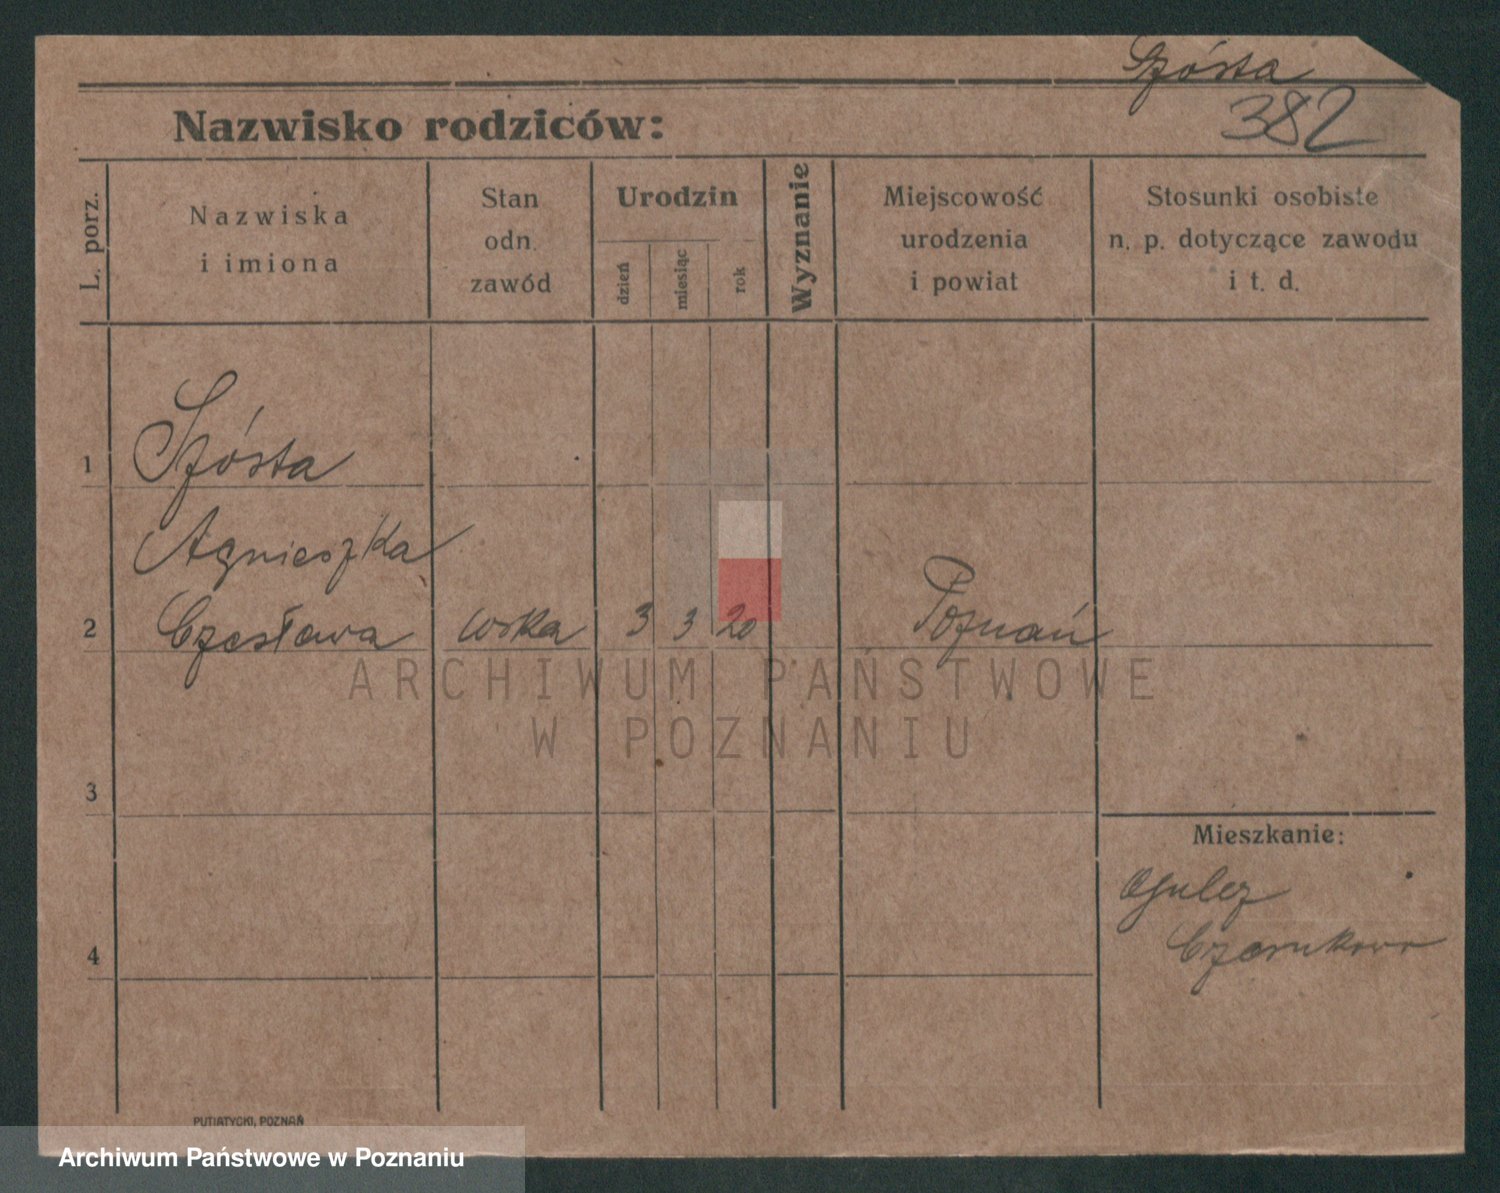 Szósta
382
Nazwisko rodziców:
L. porz.
Nazwiska
i imiona
Stan
odn.
zawód
Urodzin
dzień
miesiąc
rok
Wyznanie
Miejscowość
urodzenia
i powiat
Stosunki osobiste
n. p. dotyczące zawodu
i t. d.
1
Szósta
Agnieszka
2 Czesława 3 3 20 Poznań
3
4
Mieszkanie:
PUTIATYCKI, POZNAŃ
ARCHIWUM PAŃSTWOWE
W POZNANIU
Archiwum Państwowe w Poznaniu